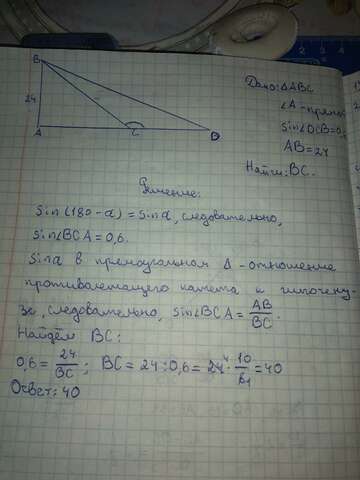 B
24
A
C
D
Дано: ΔABC
∠A - прямо
sin∠DCB=0,
AB=24
Найти: BC.
Решение:
sin(180-a) = sin a, следовательно,
sin∠BCA = 0,6.
sin a в прямоугольном Δ - отношение
противолежащего катета к гипотену-
зе, следовательно, sin∠BCA = AB/BC.
Найдём BC:
0,6 = 24/BC; BC = 24:0,6 = 24⁴·10/6₁ = 40
Ответ: 40